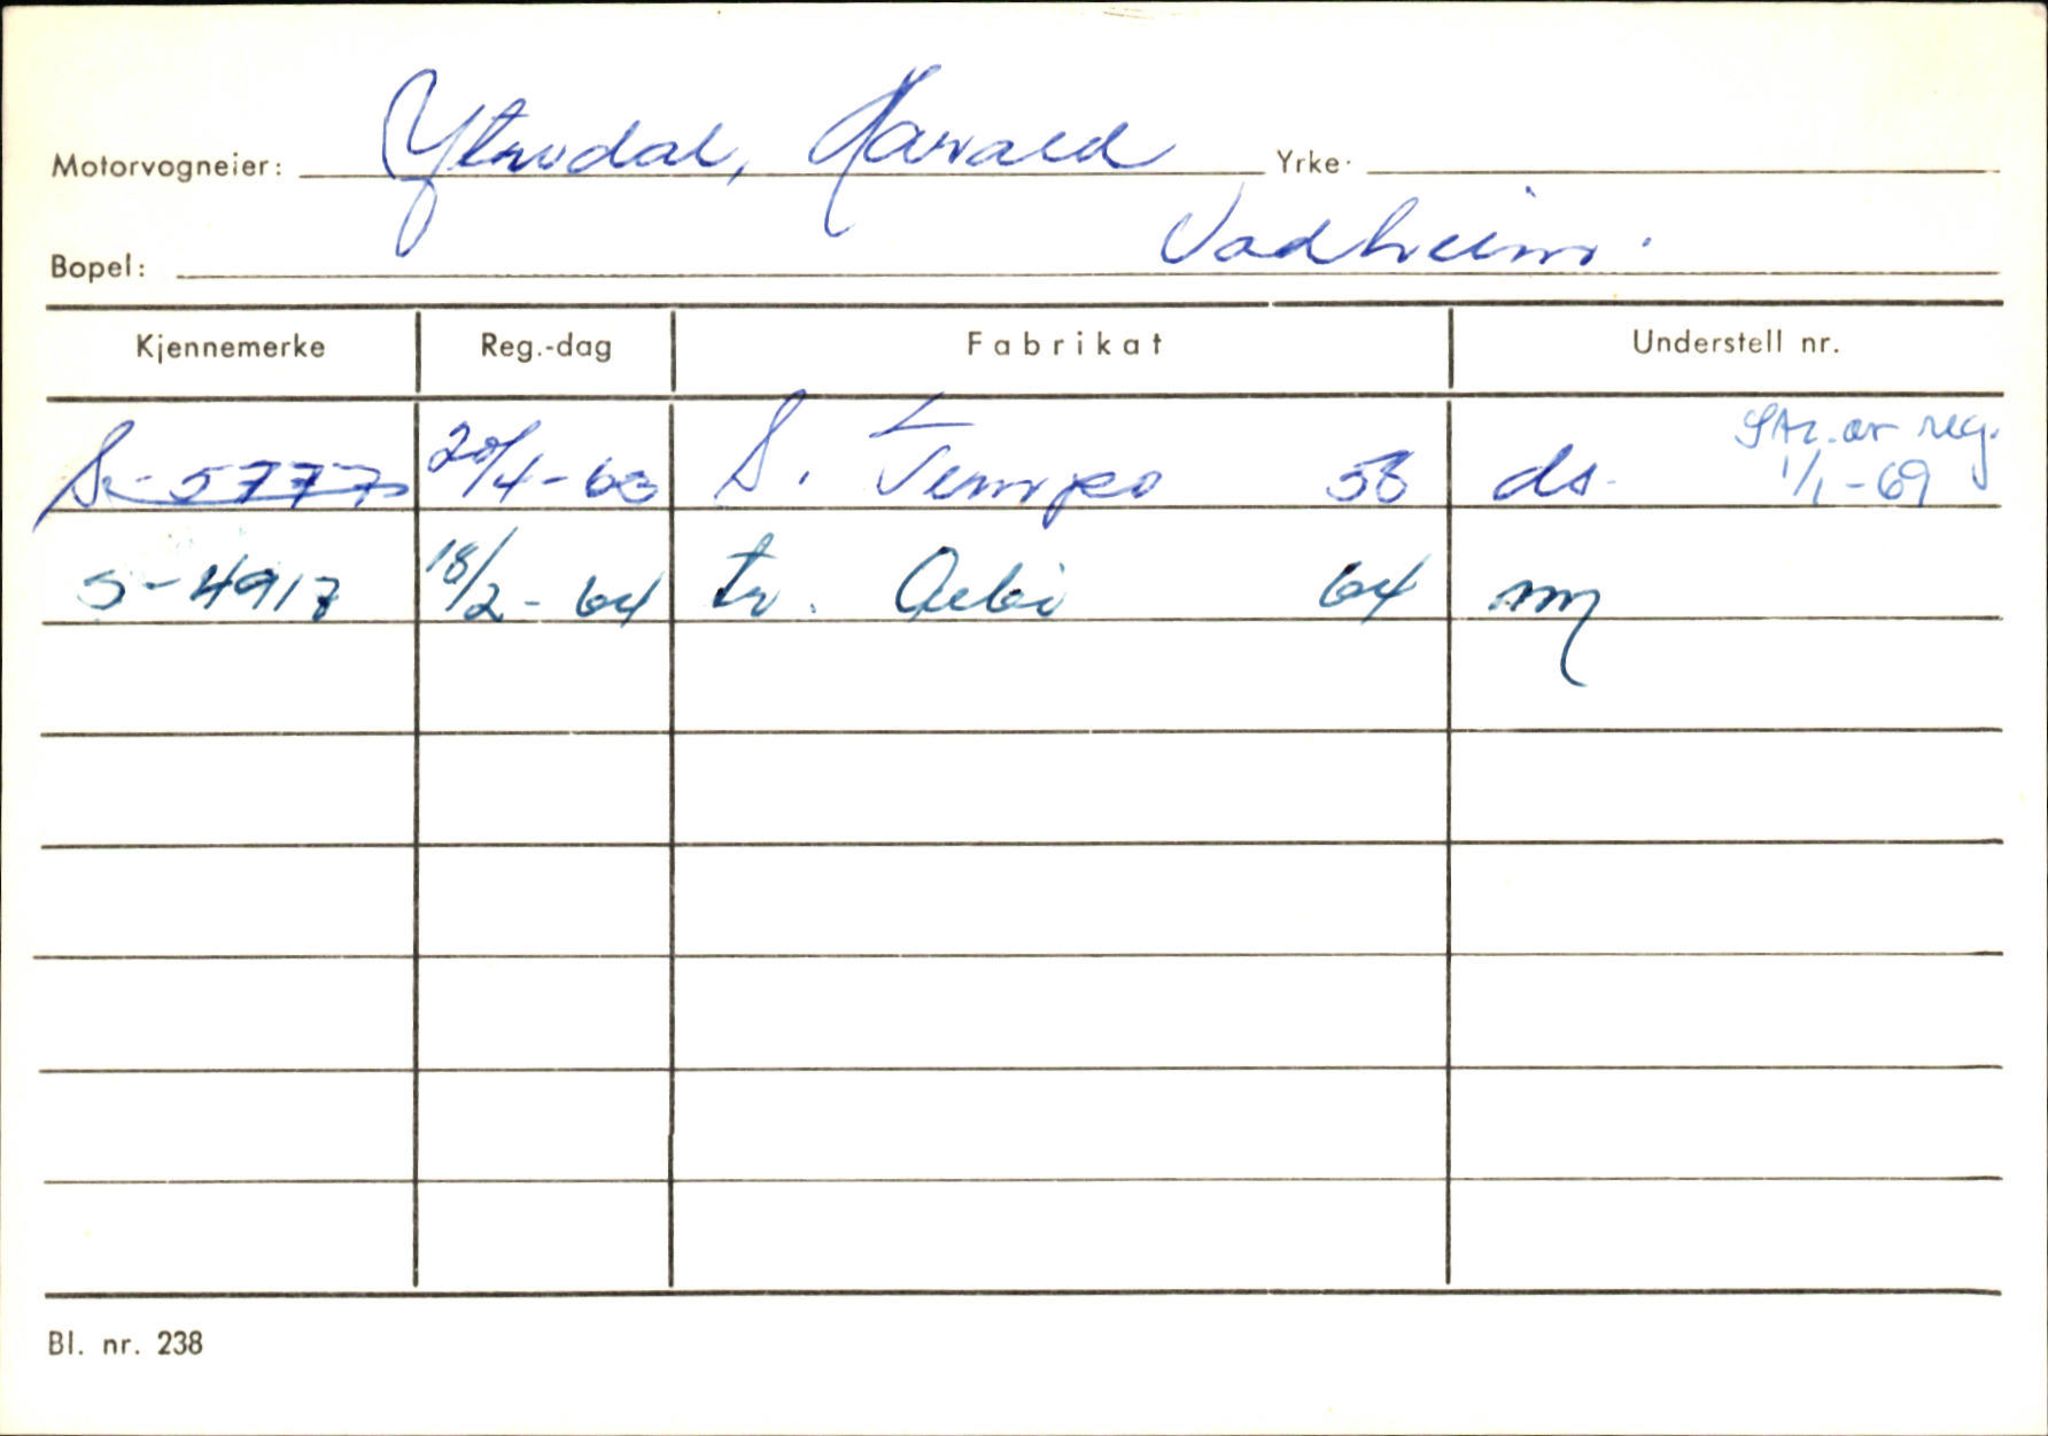 Motorvogneier: Ytredal, Harald Yrke
Bopel: Vadheim.
Kjennemerke Reg.-dag Fabrikat Understell nr.
S-5777 20/4-63 S. Tempo 58 ds. Str. av reg. 1/1-69
S-4917 18/2-64 tr. Aebi 64 ny
Bl. nr. 238